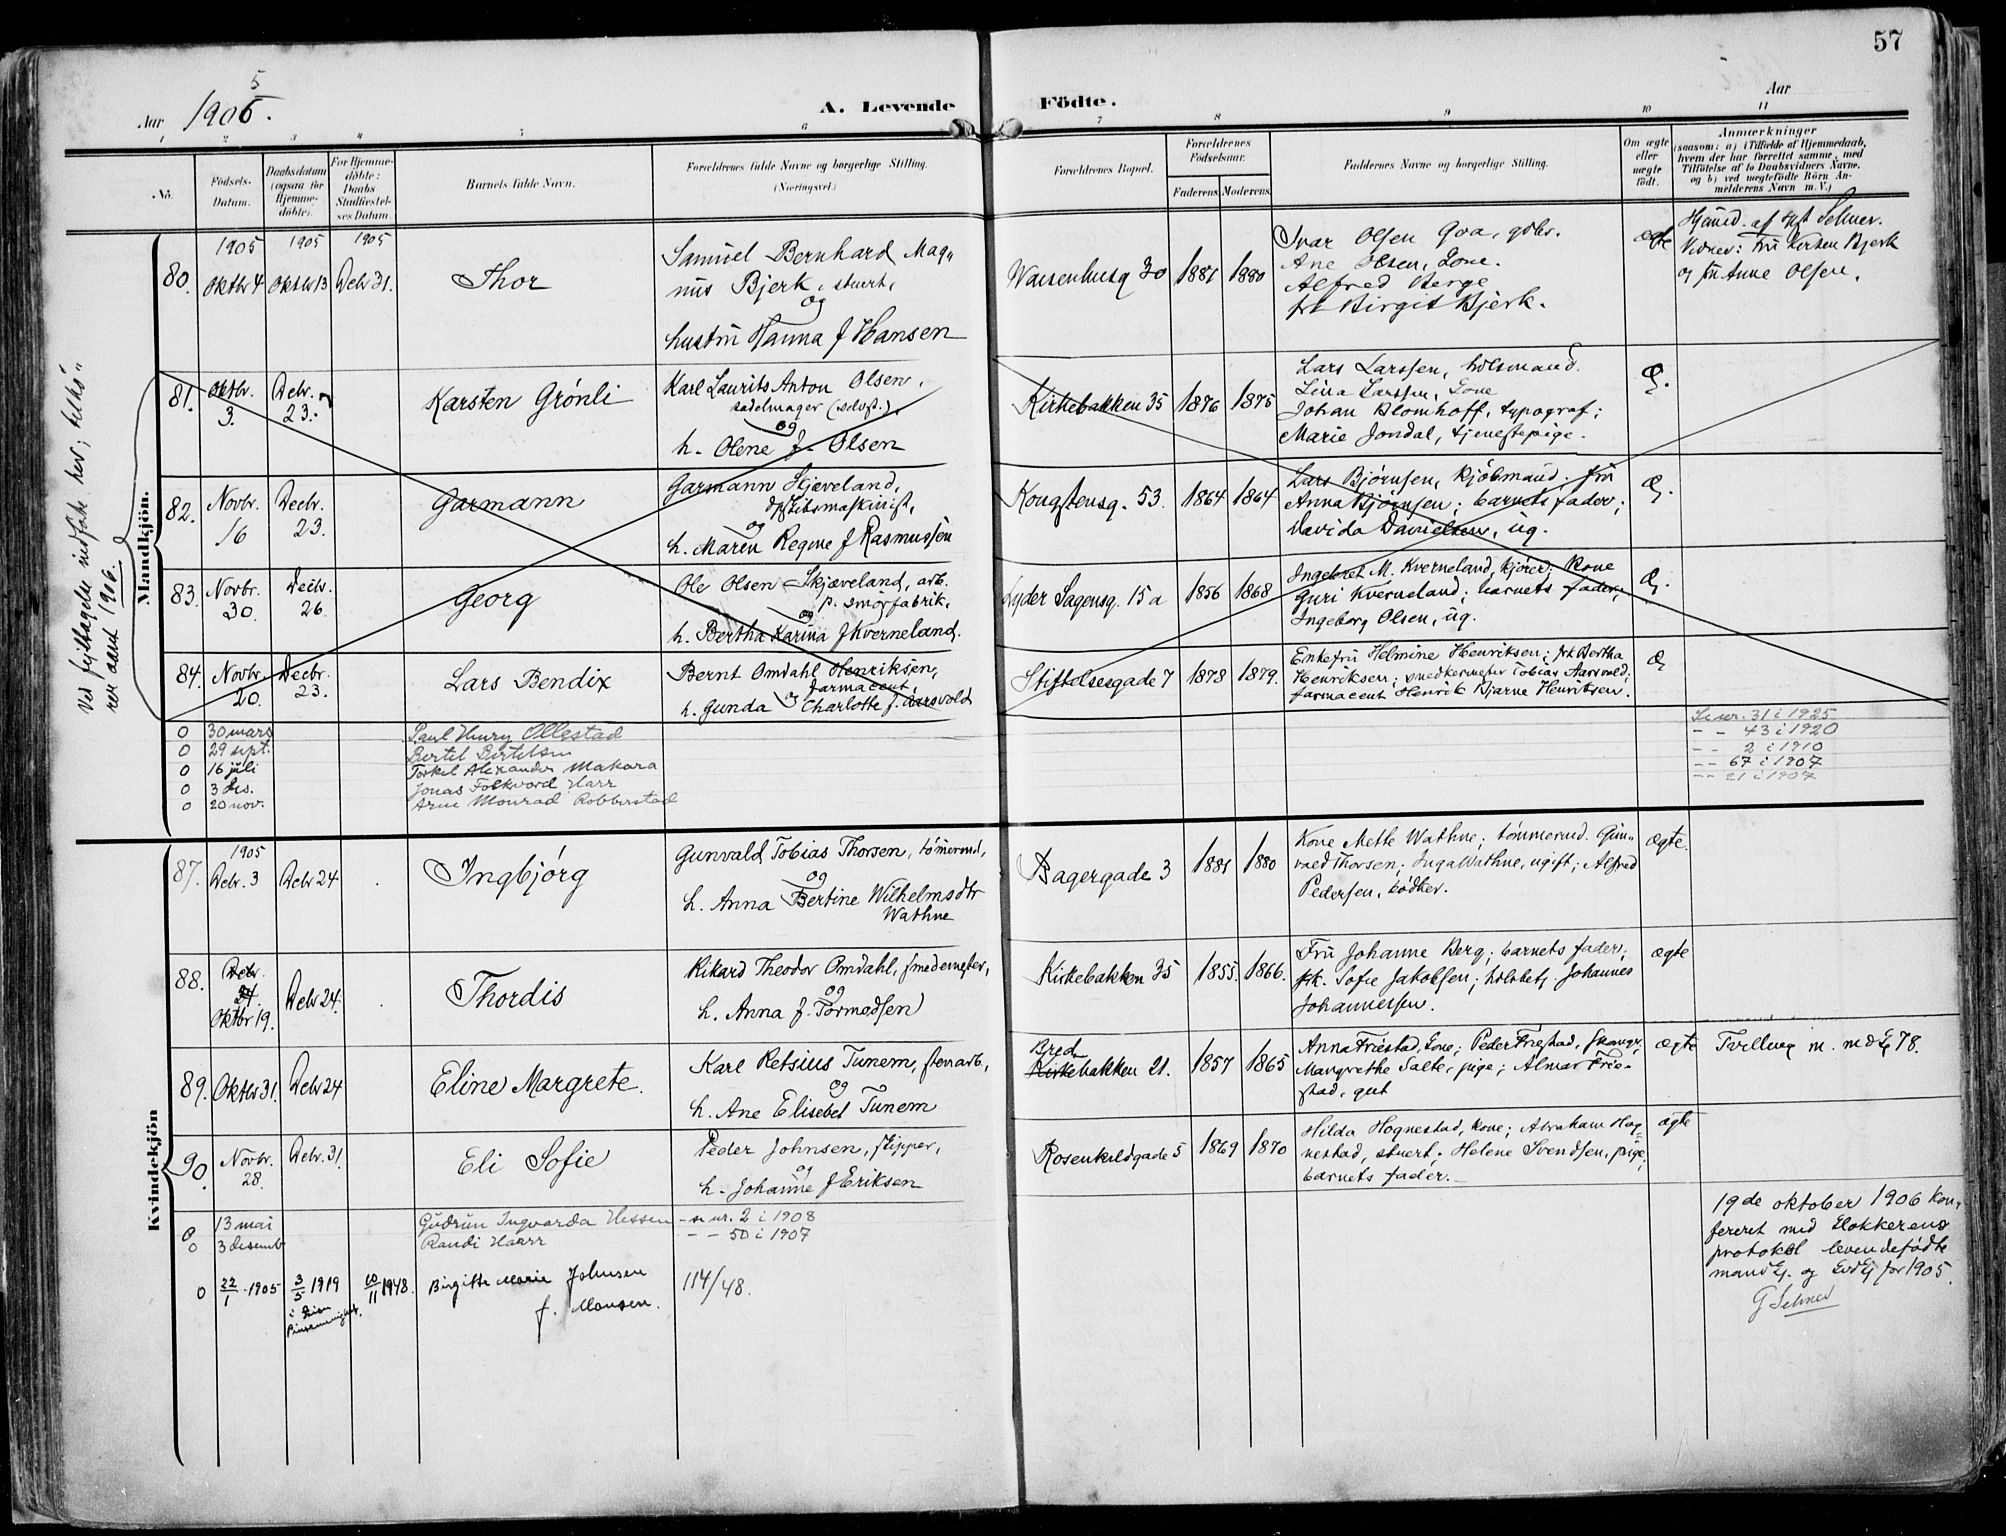 57
5
Aar 1906.
A. Levende Födte.
Aar
1 2 3 4 5 6 7 8 9 10 11
No.
Födsels-
Datum.
Daabsdatum
(ogsaa for
Hjemme-
döbte).
For Hjemme-
döbte:
Daabs
Stadfæstel-
ses Datum
Barnets fulde Navn.
Forældrenes fulde Navne og borgerlige Stilling.
(Næringsvei.)
Forældrenes Bopæl.
Forældrenes
Födselsaar.
Faderens. Moderens.
Faddernes Navne og borgerlige Stilling.
Om ægte
eller
uægte
født.
Anmærkninger
(saasom: a) i Tilfælde af Hjemmedaab,
hvem der har forrettet samme, med
Tilföielse af to Daabsvidners Navne,
og b) ved uægtefödte Börn An-
melderens Navn m. V.)
Mandkjön.
Ved feiltagelse indført her; tilhö-
rer aaret 1906.
80.
1905
Oktbr 4
1905
Oktbr 13
1905
Debr 31.
Thor
Samuel Bernhard Mag-
nus Bjerk, stuert,
og
hustru Hanna f Hansen
Waisenhusg 30
1881
1880
Ivar Olsen Goa, gdbr.
Ane Olsen, kone.
Alfred Berge
frk Birgit Bjerk.
ægte
Hjemmed. af Selmer.
Vidner: fru Kirsten Bjerk
og fru Anne Olsen.
81.
Oktbr.
3.
Debr.
23.
Karsten Grönli
Karl Laurits Anton Olsen,
sadelmager (selvst.),
og
h. Olene f. Olsen
Kirkebakken 35
1876
1875
Lars Larssen, losmand.
Lina Larssen, kone
Johan Blomhoff, typograf;
Marie Jondal, tjenestepige.
Æ.
82.
Novbr.
16
Decbr.
23.
Garmann
Garmann Skjæveland,
dpskibsmaskinist,
og
h. Maren Regine f Rasmussen
Kongstensg. 53.
1864
1864
Lars Bjørnsen, kjøbmand. fru
Anna Bjørnsen; barnets fader;
Davida Danielsen, ug.
Æ.
83.
Novbr.
30.
Decbr.
26
Georg
Ole Olsen Skjæveland, arb.
p. smörfabrik,
og
h. Bertha Karina f Kverneland.
Lyder Sagensg. 15a
1856
1868
Ingebret M. Kverneland, kjører; kone
Guri Kverneland; barnets fader;
Ingeborg Olsen, ug.
Æ.
84.
Novbr.
20.
Decbr.
23.
Lars Bendix
Bernt Omdahl Henriksen,
farmaceut
og
h. Gunda Charlotte f. Aarsvold
Stiftelsesgade 7
1878
1879.
Enkefru Helmine Henriksen; frk Bertha
Henriksen; snedkermester Tobias Aarsvold;
farmaceut Henrik Bjarne Henriksen.
Æ
0 30 mars Paul Henry Ollestad Se nr. 31 i 1925
0 29 sept. Bertel Bertelsen - - 43 i 1920
0 16 juli Torkel Alexander Makara - - 2 i 1910
0 3 des. Jonas Folkvord Harr - - 67 i 1907
0 20 nov. Arne Monrad Robberstad - - 21 i 1907
Kvindekjön
87.
1905
Debr. 3
Debr 24
Ingbjörg
Gunvald Tobias Thorsen, tömmermd,
og
h. Anna Bertine Wilhelmsdtr
Wathne
Bagergade 3
1881
1880
Kone Mette Wathne; tömmermd. Gun-
vald Thorsen; Inga Wathne, ugift; Alfred
Pedersen, bödker.
ægte.
88.
Debr.
Oktbr 19.
Debr 24.
Thordis
Rikard Theodor Omdahl, smedemester,
og
h. Anna f. Tormodsen
Kirkebakken 35
1855.
1866.
Fru Johanne Berg; barnets fader;
frk. Sofie Jakobsen; Johannes
Johannessen.
ægte
89.
Oktbr 31.
Debr 24
Eline Margrete.
Karl Retsius Tunem, stenarb.,
og
h. Ane Elisebet Tunem
Bred
Kirkebakken 21.
1857
1865
Anna Friestad, kone; Peder Friestad,
Margrethe Salte, pige; Almar Frie-
stad, gut
ægte
Tvilling m. mdkj 78.
90.
Novbr.
28.
Debr. 31
Eli Sofie
Peder Johnsen, skipper,
og
h. Johanne f Eriksen
Rosenkildgade 5
1869
1870
Hilda Hognestad, kone; Abraham Hog-
nestad, stuert; Helene Svendsen, pige;
barnets fader.
ægte
0 13 mai Gudrun Ingvarda Hessen - se nr. 2 i 1908
0 3 desemb Randi Haarr - - 50 i 1907
0 22/1 1905 3/5 1919 10/11 1948. Birgitte Marie Johnsen 114/48.
f. Monsen.
i
Pinsemenighet.
19de oktober 1906 kon-
fereret med klokkerens
protokol levendefødte
mandkj. og kvdkj for 1905.
G Selmer